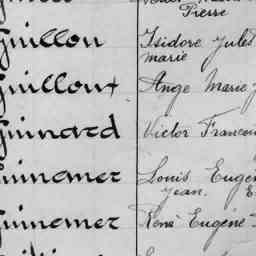 Pierre
Guillon Isidore Jules
marie
Guillout Ange Marie
Guinard Victor
Guinamer Louis
Jean.
Guinamer René Eugène